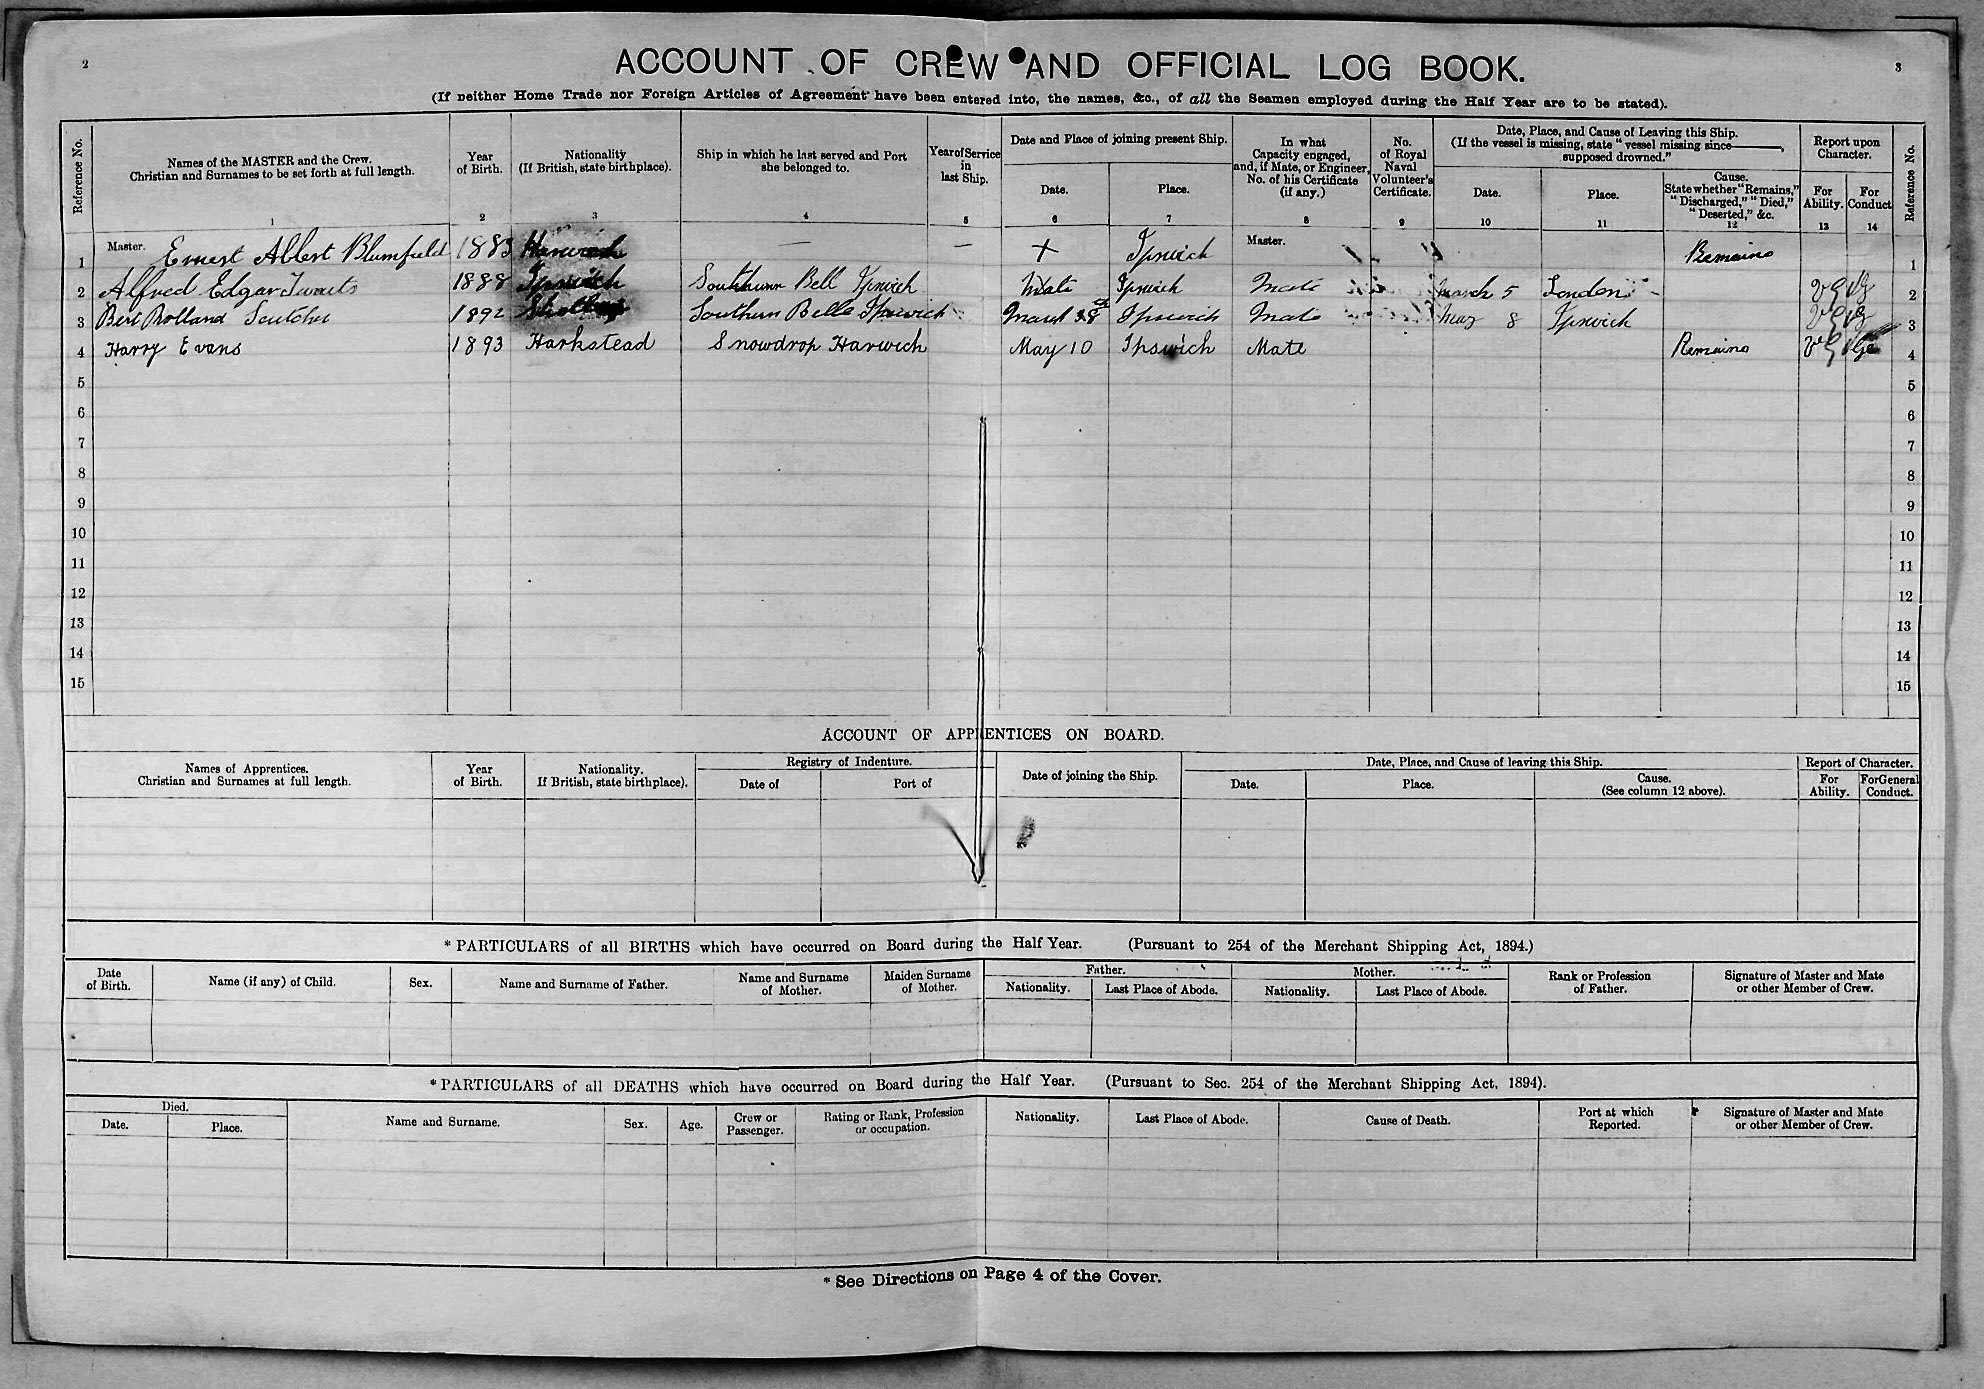 2
3
ACCOUNT OF CREW AND OFFICIAL LOG BOOK.
(If neither Home Trade nor Foreign Articles of Agreement have been entered into, the names, &c., of all the Seamen employed during the Half Year are to be stated).
Reference No.
Names of the MASTER and the Crew.
Christian and Surnames to be set forth at full length.
1
Year
of Birth.
2
Nationality
(If British, state birthplace).
3
Ship in which he last served and Port
she belonged to.
4
Year of Service
in
last Ship.
5
Date and Place of joining present Ship.
Date.
6
Place.
7
In what
Capacity engaged,
and, if Mate, or Engineer,
No. of his Certificate
(if any.)
8
No.
of Royal
Naval
Volunteer's
Certificate.
9
Date, Place, and Cause of Leaving this Ship.
(If the vessel is missing, state "vessel missing since———,
supposed drowned."
Date.
10
Place.
11
Cause.
State whether "Remains,"
"Discharged," "Died,"
"Deserted," &c.
12
Report upon
Character.
For
Ability.
13
For
Conduct
14
Reference No.
1 Master. Ernest Albert Blumfield 1883 Harwich — — + Ipswich Master. Remains 1
2 Alfred Edgar Twaits 1888 Ipswich Southurn Bell Ipswich Mate Ipswich Mate March 5 London VG VG 2
3 Bert Rolland Scutcher 1892 Southern Belle Ipswich March Ipswich Mate May 8 Ipswich VG VG 3
4 Harry Evans 1893 Harkstead Snowdrop Harwich May 10 Ipswich Mate Remains VG VG 4
5 5
6 6
7 7
8 8
9 9
10 10
11 11
12 12
13 13
14 14
15 15
ACCOUNT OF APPRENTICES ON BOARD.
Names of Apprentices.
Christian and Surnames at full length.
Year
of Birth.
Nationality.
If British, state birthplace).
Registry of Indenture.
Date of
Port of
Date of joining the Ship.
Date, Place, and Cause of leaving this Ship.
Date.
Place.
Cause.
(See column 12 above).
Report of Character.
For
Ability.
For General
Conduct.
* PARTICULARS of all BIRTHS which have occurred on Board during the Half Year. (Pursuant to 254 of the Merchant Shipping Act, 1894.)
Date
of Birth.
Name (if any) of Child.
Sex.
Name and Surname of Father.
Name and Surname
of Mother.
Maiden Surname
of Mother.
Father.
Nationality.
Last Place of Abode.
Mother.
Nationality.
Last Place of Abode.
Rank or Profession
of Father.
Signature of Master and Mate
or other Member of Crew.
* PARTICULARS of all DEATHS which have occurred on Board during the Half Year. (Pursuant to Sec. 254 of the Merchant Shipping Act, 1894).
Died.
Date.
Place.
Name and Surname.
Sex.
Age.
Crew or
Passenger.
Rating or Rank, Profession
or occupation.
Nationality.
Last Place of Abode.
Cause of Death.
Port at which
Reported.
Signature of Master and Mate
or other Member of Crew.
* See Directions on Page 4 of the Cover.